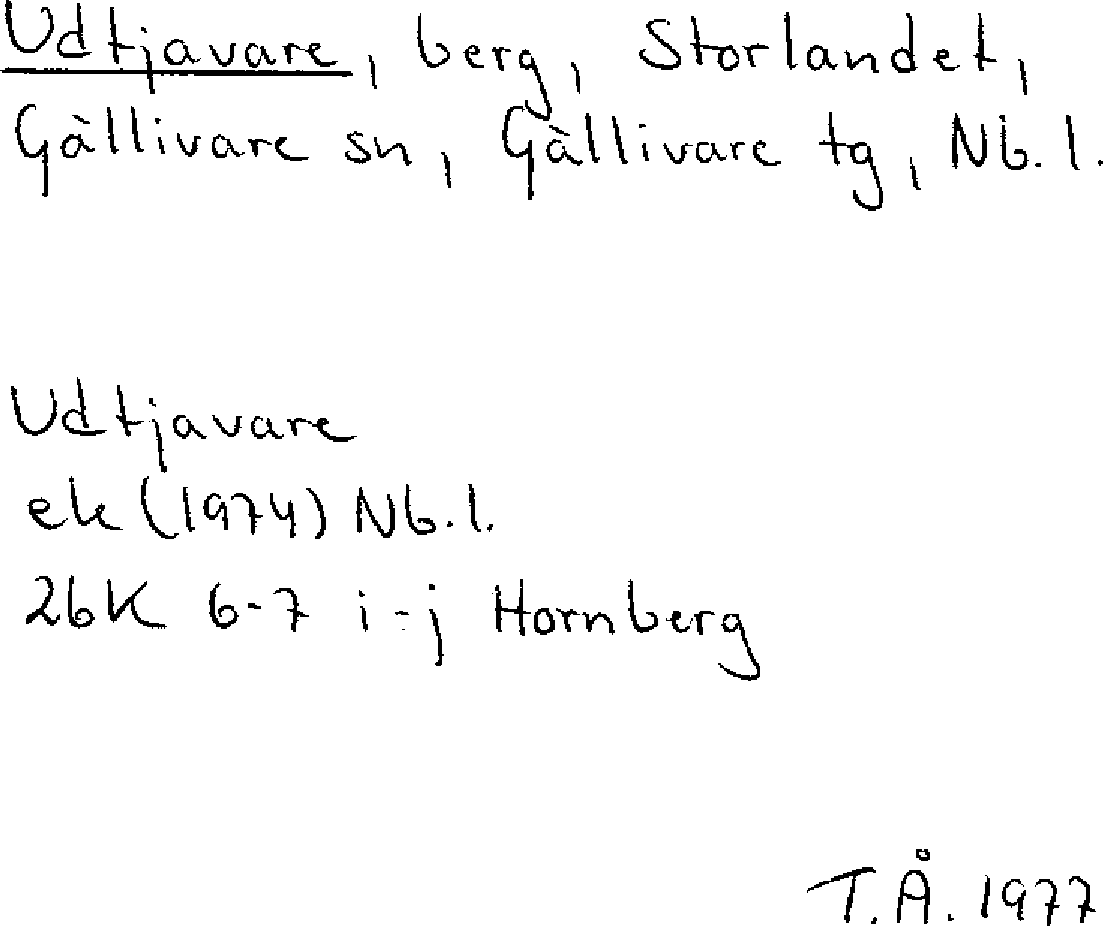 Udtjavare, berg, Storlandet,
Gällivare sn, Gällivare tg, Nb. l.
Udtjavare
ek (1974) Nb. l.
26K 6-7 i-j Hornberg
T.Å. 1977